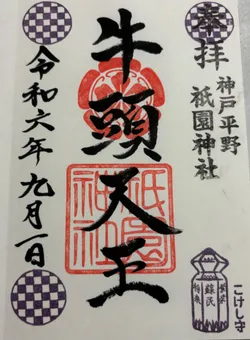 奉拝
神戸平野
祇園神社
牛頭天王
祇園神社
令和六年九月一日
こけし守
蘇民